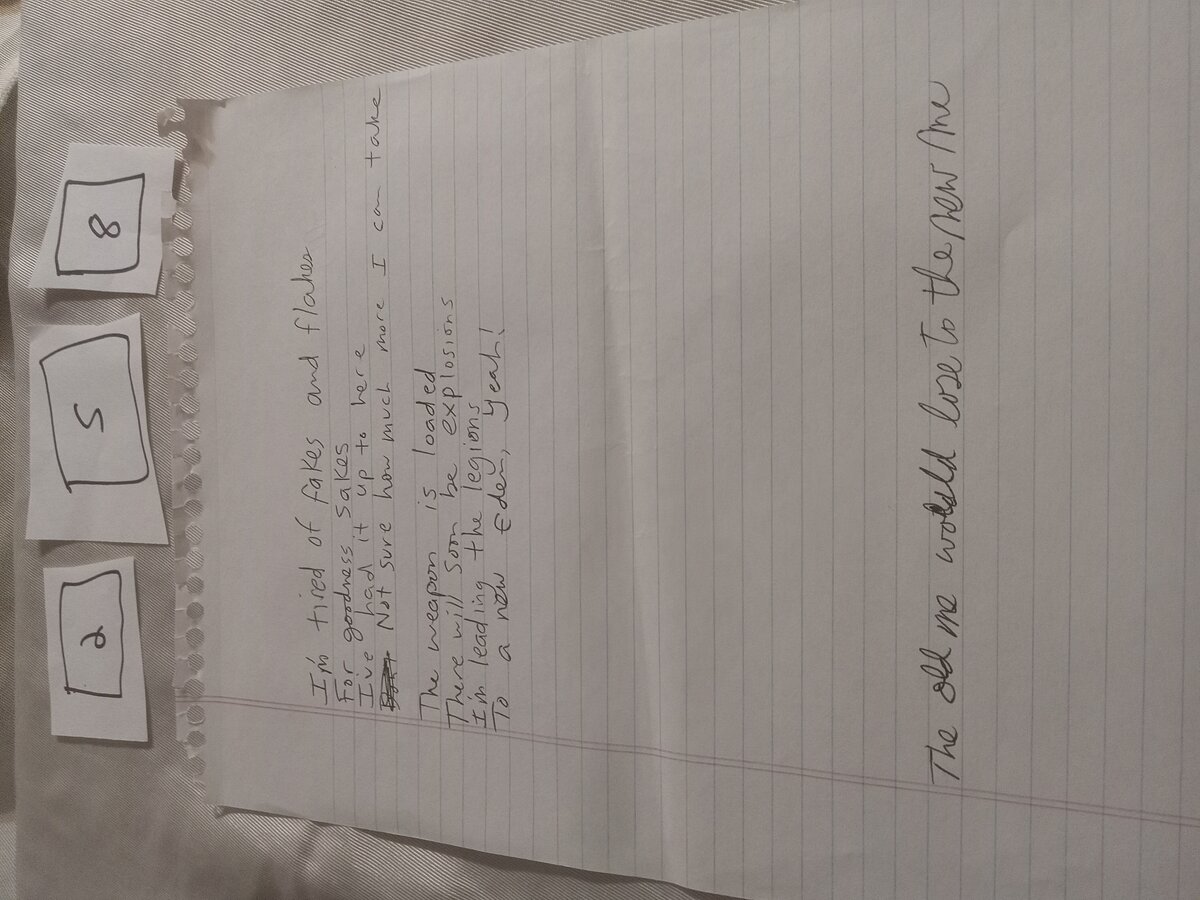 2
5
8
I'm tired of fakes and flakes
For goodness sakes
I've had it up to here
Not sure how much more I can take
The weapon is loaded
There will soon be explosions
I'm leading the legions
To a new Eden, yeah!
The old me would lose to the new me